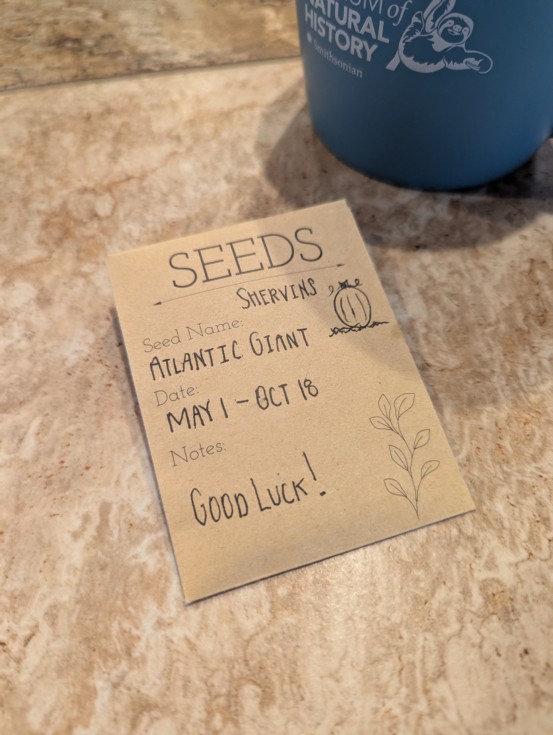 OM of
NATURAL
HISTORY
Smithsonian
SEEDS
SHERVINS
Seed Name:
ATLANTIC GIANT
Date:
MAY 1 - OCT 18
Notes:
GOOD LUCK!